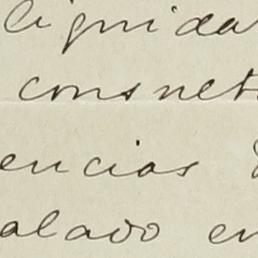 liquida
consuet
encias
alado en